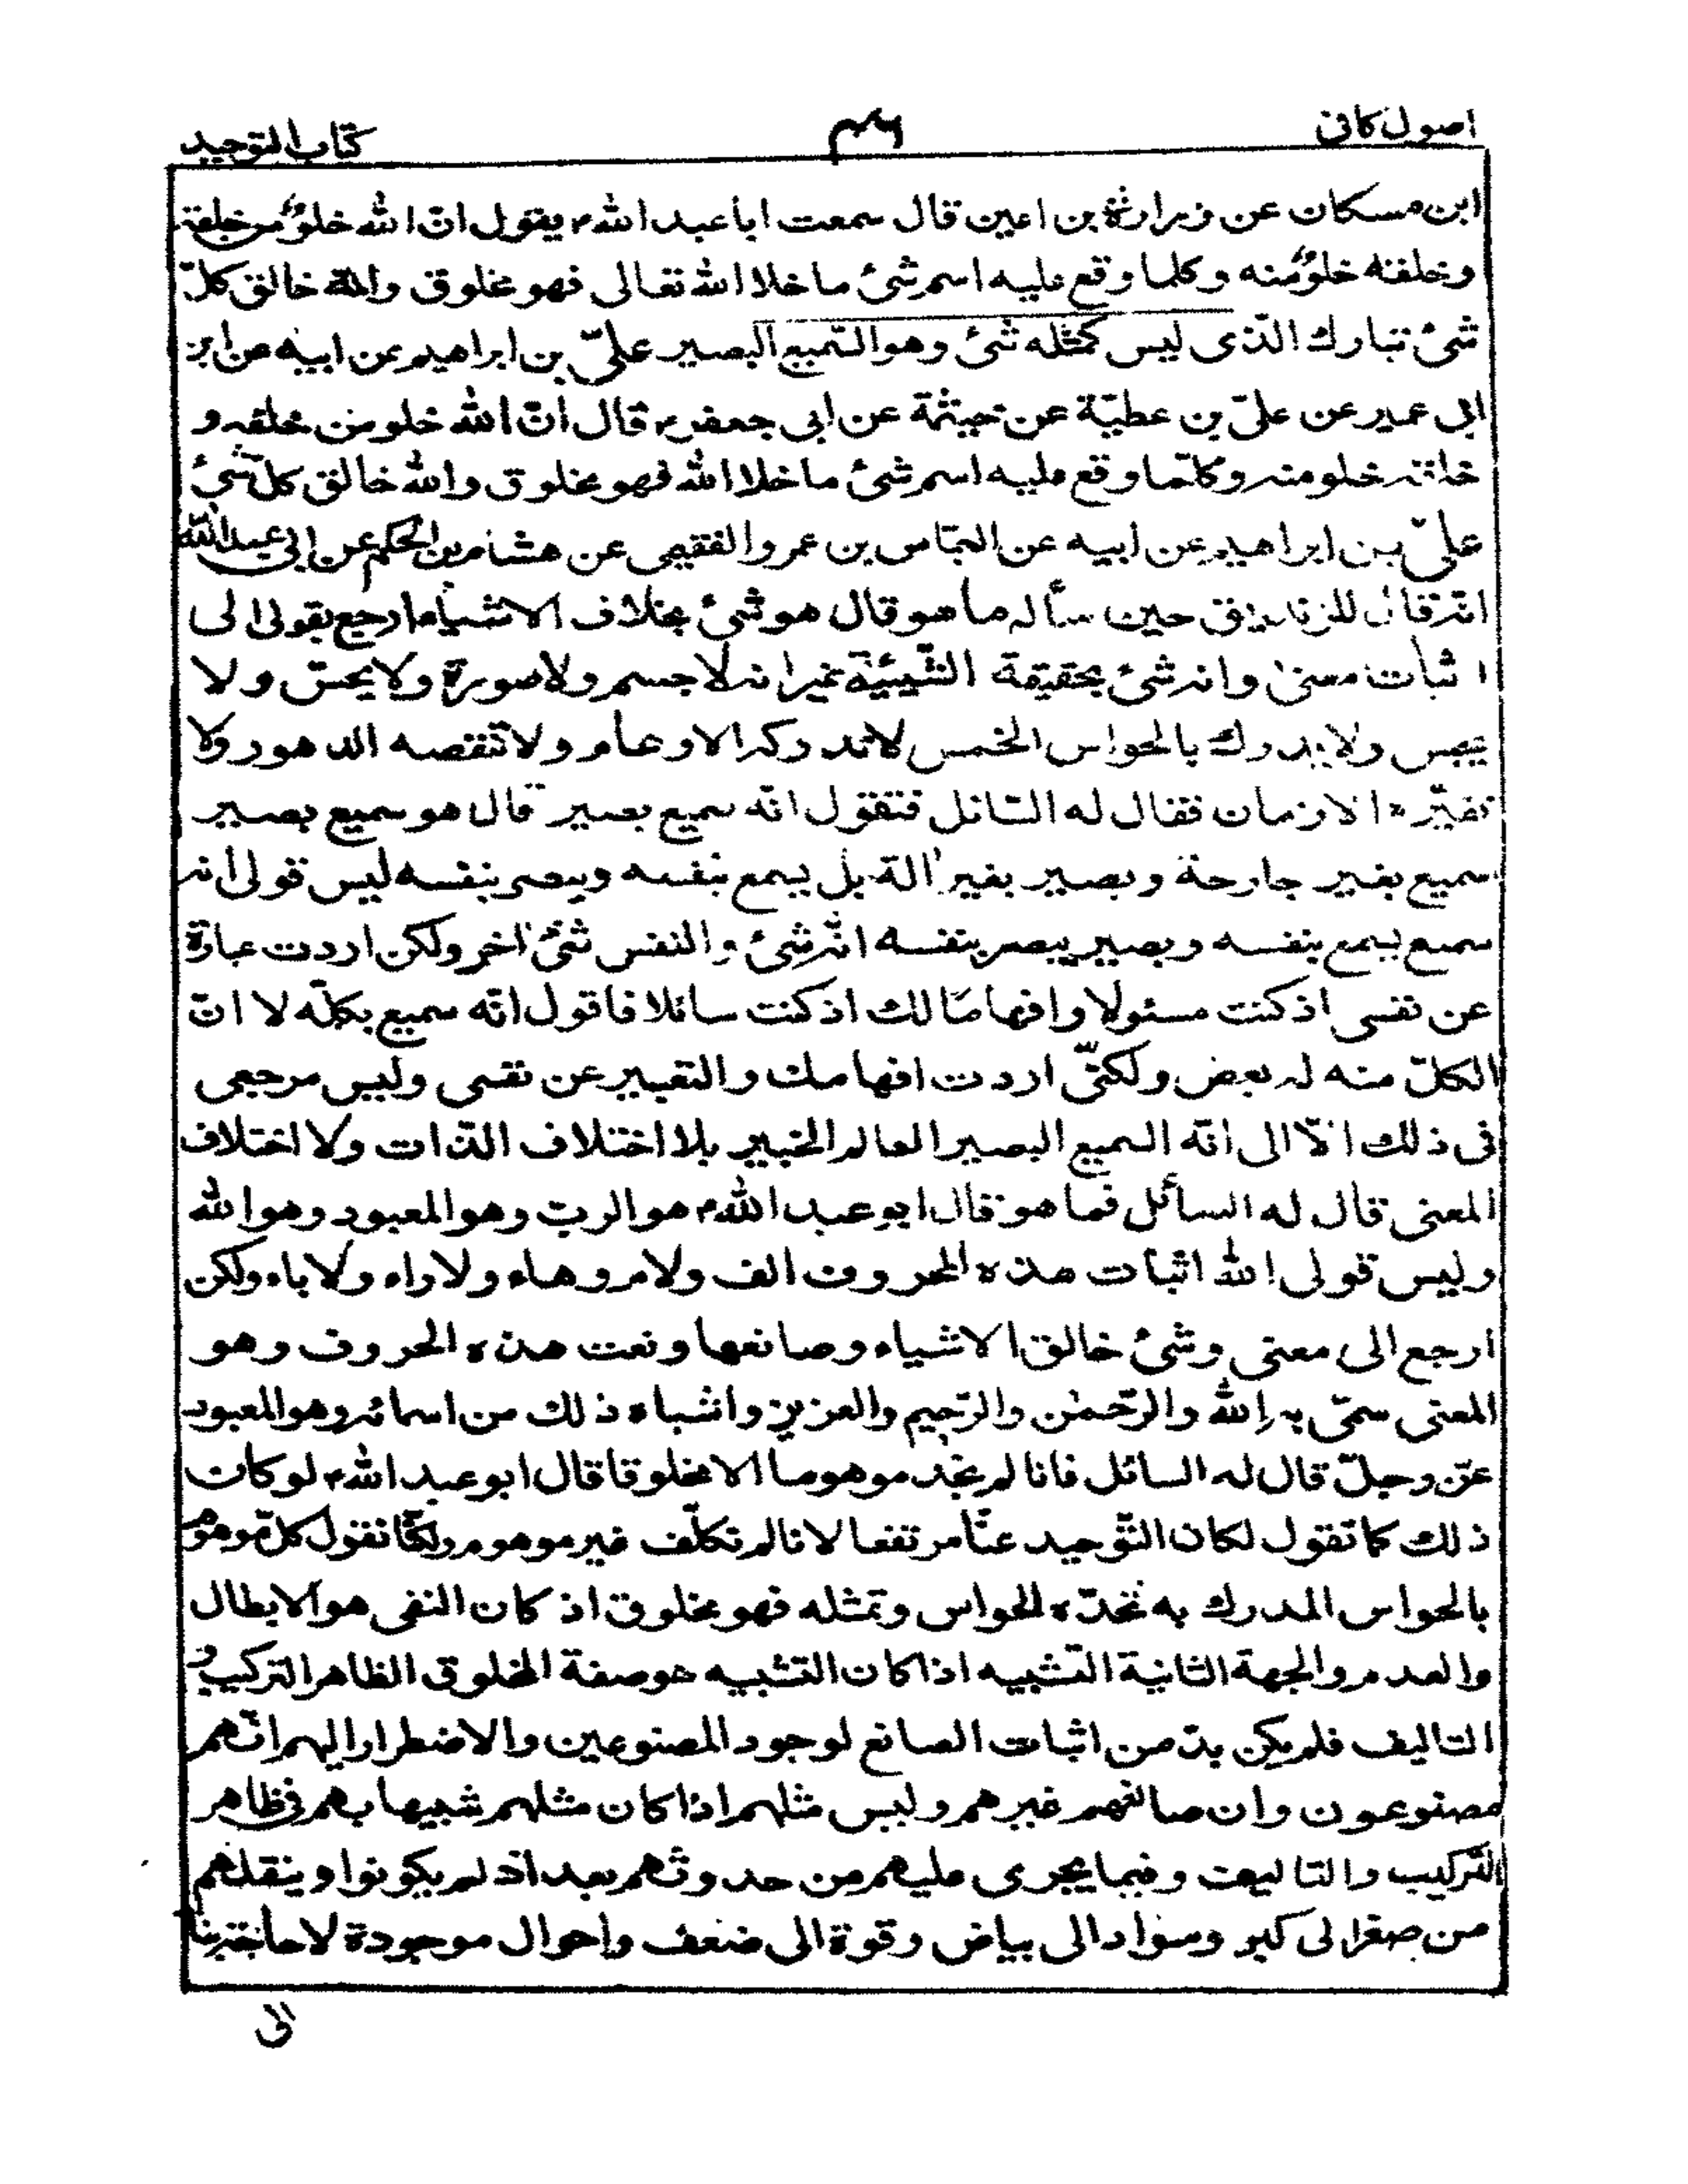 اصول كافى
٤٦
كتاب التوحيد
ابن مسكان عن زرارة بن اعين قال سمعت ابا عبد الله ع يقول انّ الله خلوٌ من خلقه
وخلقه خلوٌ منه وكلما وقع عليه اسم شئ ما خلا الله تعالى فهو مخلوق والله خالق كلّ
شئ تبارك الّذى ليس كمثله شئ وهو السّميع البصير علىّ بن ابراهيم عن ابيه عن ابن
ابى عمير عن علىّ بن عطيّة عن خيثمة عن ابى جعفر ع قال انّ الله خلو من خلقه و
خلقه خلو منه وكلّما وقع عليه اسم شئ ما خلا الله فهو مخلوق والله خالق كلّ شئ
علىّ بن ابراهيم عن ابيه عن العبّاس بن عمرو الفقيمى عن هشام بن الحكم عن ابى عبد الله
انّه قال للزنديق حين سأله ما هو قال هو شئ بخلاف الاشياء ارجع بقولى الى
اثبات معنى وانه شئ بحقيقة الشّيئيّة غير انه لا جسم ولا صورة ولا يحسّ ولا
يجس ولا يدرك بالحواس الخمس لا تدركه الاوهام ولا تنقصه الدهور ولا
تغيّره الازمان فقال له السّائل فتقول انّه سميع بصير قال هو سميع بصير
سميع بغير جارحة وبصير بغير الة بل يسمع بنفسه ويبصر بنفسه ليس قولى انه
سميع يسمع بنفسه وبصير يبصر بنفسه انّه شئ والنفس شئ اخر ولكن اردت عبارة
عن نفسى اذ كنت مسئولا وافهاما لك اذ كنت سائلا فاقول انّه سميع بكلّه لا انّ
الكلّ منه له بعض ولكنّى اردت افهامك والتعبير عن نفسى وليس مرجعى
فى ذلك الّا الى انّه السميع البصير العالم الخبير بلا اختلاف الذّات ولا اختلاف
المعنى قال له السائل فما هو قال ابو عبد الله ع هو الربّ وهو المعبود وهو الله
وليس قولى الله اثبات هذه الحروف الف ولام وهاء ولا راء ولا باء ولكن
ارجع الى معنى وشئ خالق الاشياء وصانعها ونعت هذه الحروف وهو
المعنى سمّى به الله والرّحمٰن والرّحيم والعزيز واشباه ذلك من اسمائه وهو المعبود
عزّ وجلّ قال له السائل فانا لم نجد موهوما الا مخلوقا قال ابو عبد الله ع لو كان
ذلك كما تقول لكان التّوحيد عنّا مرتفعا لانا لم نكلّف غير موهوم ولكنّا نقول كلّ موهوم
بالحواس المدرك به تحدّه الحواس وتمثله فهو مخلوق اذ كان النفى هو الابطال
والعدم والجهة الثانية التّشبيه اذا كان التشبيه هو صفة المخلوق الظاهر التركيب و
التاليف فلم يكن بدّ من اثبات الصانع لوجود المصنوعين والاضطرار اليهم انّهم
مصنوعون وان صانعهم غيرهم وليس مثلهم اذا كان مثلهم شبيها بهم فى ظاهر
التّركيب والتاليف وفيما يجرى عليهم من حدوثهم بعد اذ لم يكونوا وينقلهم
من صغر الى كبر وسواد الى بياض وقوة الى ضعف واحوال موجودة لا حاجة بنا
الى